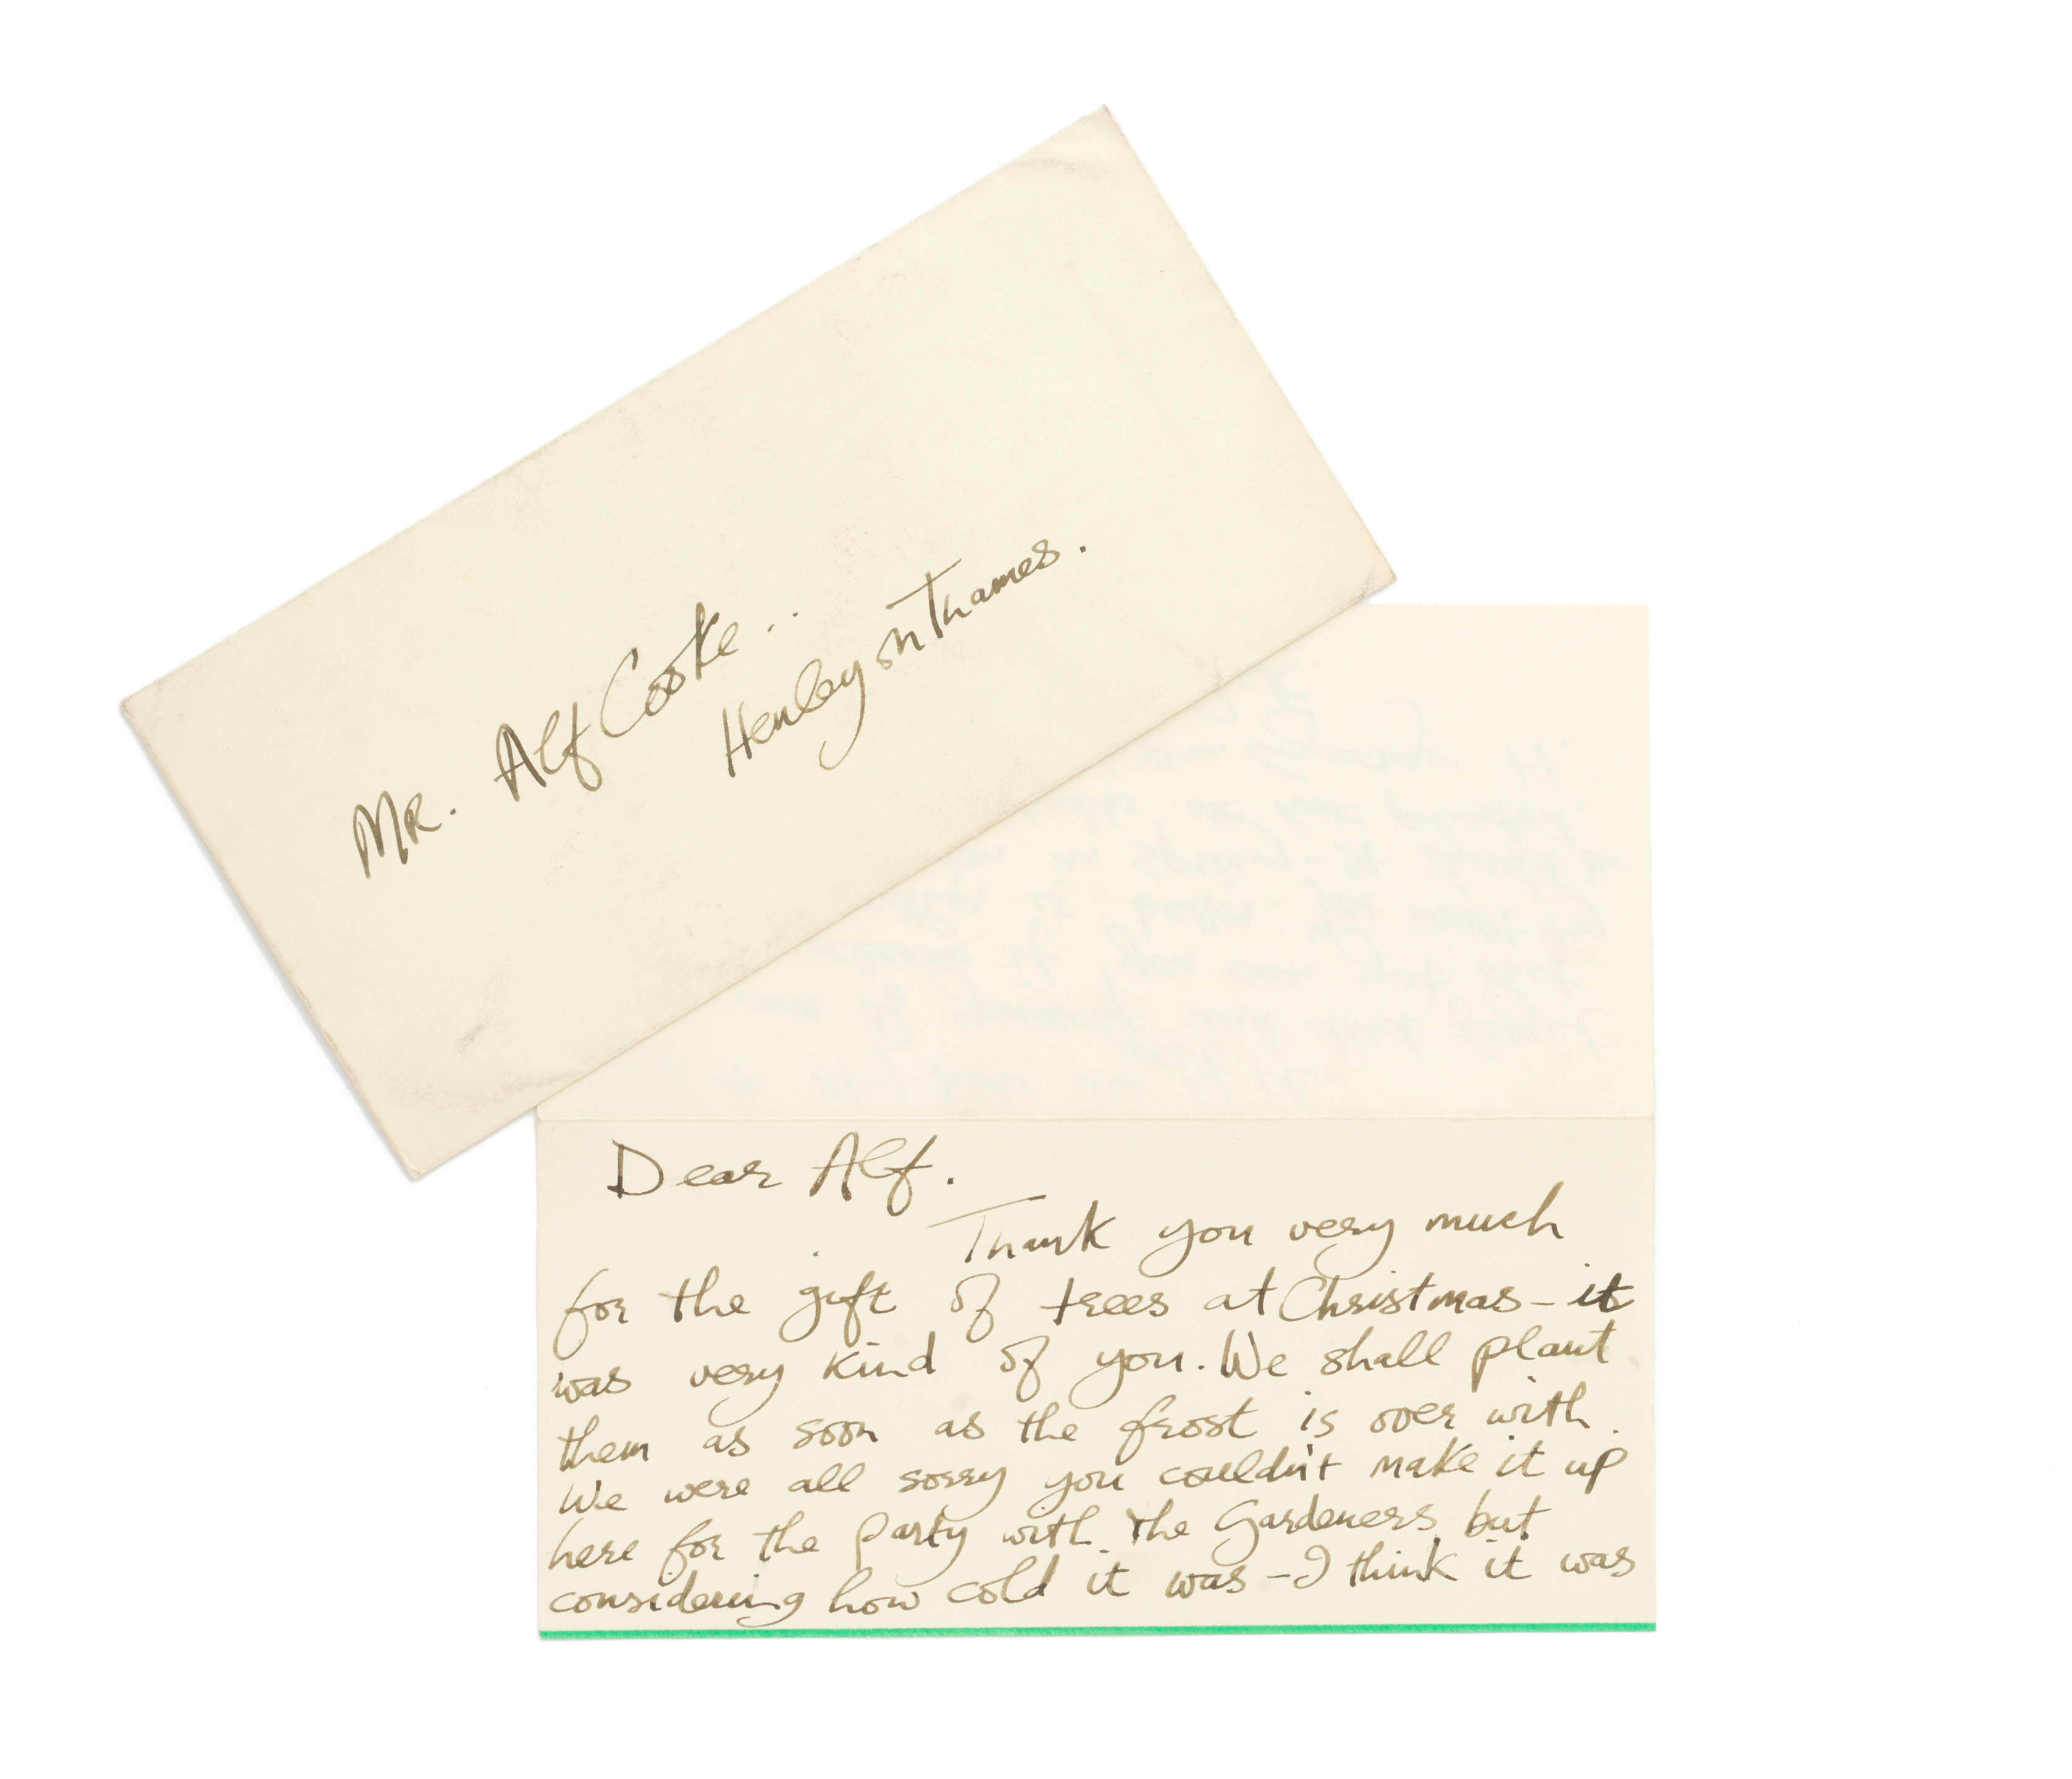 Mr. Alf Cooke..
Henley on Thames.
Dear Alf.
Thank you very much
for the gift of trees at Christmas - it
was very kind of you. We shall plant
them as soon as the frost is over with.
We were all sorry you couldn't make it up
here for the party with the Gardeners but
considering how cold it was - I think it was